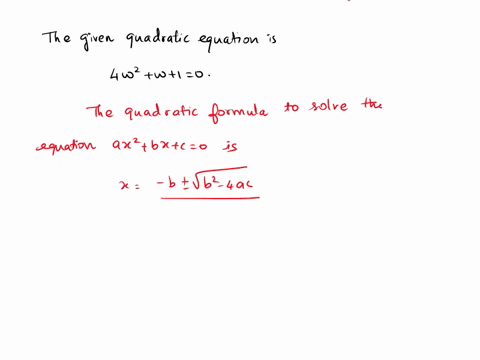 The given quadratic equation is
4w²+w+1=0.
The quadratic formula to solve the
equation ax²+bx+c=0 is
x= -b±√b²-4ac